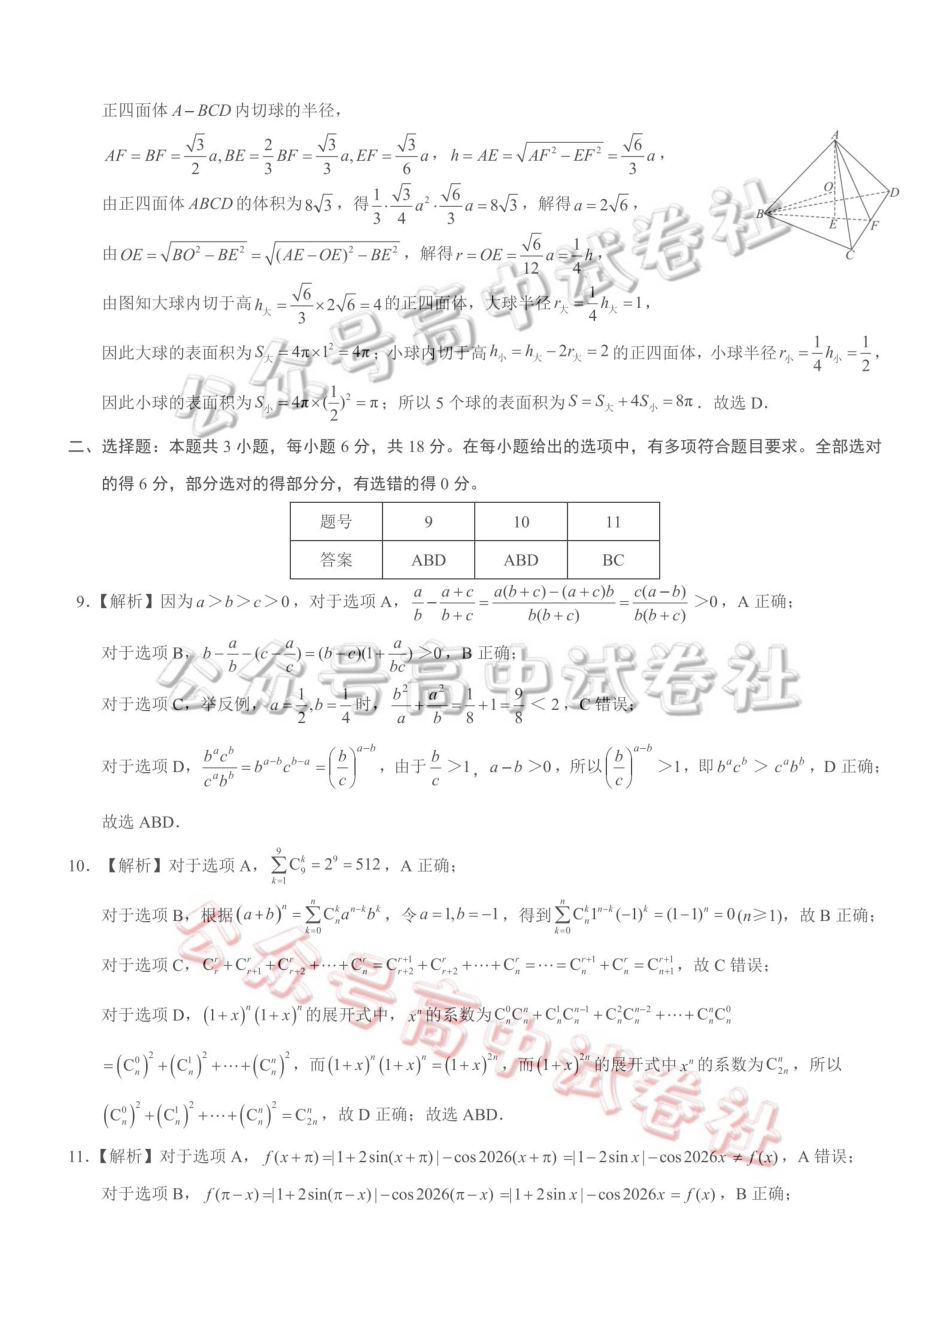 正四面体 A−BCD 内切球的半径，
AF = BF = √3/2 a, BE = 2/3 BF = √3/3 a, EF = √3/6 a，h = AE = √(AF² − EF²) = √6/3 a，
由正四面体 ABCD 的体积为 8√3，得 1/3 · √3/4 a² · √6/3 a = 8√3，解得 a = 2√6，
由 OE = √(BO² − BE²) = √((AE − OE)² − BE²)，解得 r = OE = √6/12 a = 1/4 h，
由图知大球内切于高 h大 = √6/3 × 2√6 = 4 的正四面体，大球半径 r大 = 1/4 h大 = 1，
因此大球的表面积为 S大 = 4π×1² = 4π；小球内切于高 h小 = h大 − 2r大 = 2 的正四面体，小球半径 r小 = 1/4 h小 = 1/2，
因此小球的表面积为 S小 = 4π×(1/2)² = π；所以 5 个球的表面积为 S = S大 + 4S小 = 8π．故选 D．
A
O
D
B
E
F
C
二、选择题：本题共 3 小题，每小题 6 分，共 18 分。在每小题给出的选项中，有多项符合题目要求。全部选对
的得 6 分，部分选对的得部分分，有选错的得 0 分。
题号 9 10 11
答案 ABD ABD BC
9．【解析】因为 a＞b＞c＞0，对于选项 A，a/b − (a+c)/(b+c) = (a(b+c)−(a+c)b)/(b(b+c)) = c(a−b)/(b(b+c)) ＞0，A 正确；
对于选项 B，b − a/b − (c − a/c) = (b−c)(1 + a/bc) ＞0，B 正确；
对于选项 C，举反例，a = 1/2, b = 1/4 时，b²/a + a²/b = 1/8 + 1 = 9/8 ＜ 2，C 错误；
对于选项 D，bᵃcᵇ/cᵃbᵇ = bᵃ⁻ᵇcᵇ⁻ᵃ = (b/c)ᵃ⁻ᵇ，由于 b/c ＞1，a−b＞0，所以 (b/c)ᵃ⁻ᵇ ＞1，即 bᵃcᵇ ＞ cᵃbᵇ，D 正确；
故选 ABD．
10．【解析】对于选项 A，∑_{k=1}^{9} C_9^k = 2⁹ = 512，A 正确；
对于选项 B，根据 (a+b)^n = ∑_{k=0}^{n} C_n^k a^{n−k} b^k，令 a = 1, b = −1，得到 ∑_{k=0}^{n} C_n^k 1^{n−k} (−1)^k = (1−1)^n = 0 (n≥1)，故 B 正确；
对于选项 C，C_r^r + C_{r+1}^r + C_{r+2}^r + ⋯ + C_n^r = C_{r+2}^{r+1} + C_{r+2}^r + ⋯ + C_n^r = ⋯ = C_n^{r+1} + C_n^r = C_{n+1}^{r+1}，故 C 错误；
对于选项 D，(1+x)^n (1+x)^n 的展开式中，x^n 的系数为 C_n^0 C_n^n + C_n^1 C_n^{n−1} + C_n^2 C_n^{n−2} + ⋯ + C_n^n C_n^0
= (C_n^0)² + (C_n^1)² + ⋯ + (C_n^n)²，而 (1+x)^n (1+x)^n = (1+x)^{2n}，而 (1+x)^{2n} 的展开式中 x^n 的系数为 C_{2n}^n，所以
(C_n^0)² + (C_n^1)² + ⋯ + (C_n^n)² = C_{2n}^n，故 D 正确；故选 ABD．
11．【解析】对于选项 A，f(x+π) =|1+2sin(x+π)|−cos2026(x+π) =|1−2sin x|−cos2026x ≠ f(x)，A 错误；
对于选项 B，f(π−x) =|1+2sin(π−x)|−cos2026(π−x) =|1+2sin x|−cos2026x = f(x)，B 正确；
公众号高中试卷社
公众号高中试卷社
公众号高中试卷社